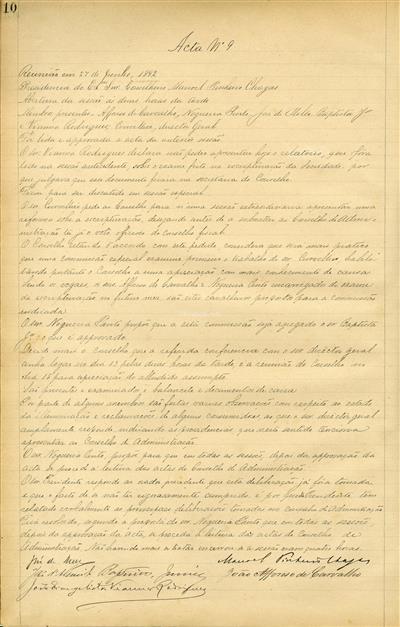 10
Acta Nº 9
Reunião em 27 de Junho, 1892
Presidencia do Exmo Snr. Conselheiro Manoel Pinheiro Chagas
Abertura da sessão ás duas horas da tarde
Membros presentes. Affonso de Carvalho, Nogueira Pinto, José de Mello, Baptista Jor
director Geral
Foi lida e approvada a acta da anterior sessão
O snr. Vianna Rodrigues declara não poder apresentar hoje o relatorio, que fora
lido na sessão antecedente, sobre o exame feito na escripturação da Sociedade, por
que julgava que esse documento ficara na secretaria do Conselho.
Ficou para ser discutido em sessão especial
pede ao Conselho para n'uma sessão extraordinaria apresentar uma
reforma sobre a escripturação, desejando antes de a submetter ao Conselho d'Adminis-
tração já o voto do conselho fiscal
O Conselho com este pedido considera que seria mais pratico
que uma commissão especial examine primeiro o trabalho do snr.
portanto o Conselho a uma apreciação com mais conhecimento de causa
Sendo os vogaes, os snrs Affonso de Carvalho e Nogueira Pinto encarregados do exame
da escripturação no futuro mez, são estes cavalheiros propostos para a commissão
indicada
O snr. Nogueira Pinto propõe que a esta commissão seja aggregado o snr Baptista
Jor, o que é approvado.
Decide mais o conselho que a referida conferencia com o snr. director geral
tenha logar no dia 13 pelas duas horas da tarde, e a reunião do Conselho no
dia 15 para apreciação do alludido assumpto
São presentes e examinados, o balancete e documentos de caixa
Por parte de alguns membros são feitas varias observações com respeito ao estado
da illuminação e reclamações de alguns consumidores, ao que o snr director geral
amplamente responde, indicando as providencias que n'este sentido tenciona
apresentar ao Conselho d'Administração
O snr. Nogueira Pinto, propõe para que em todas as sessões, depois da approvação da
acta se proceda á leitura das actas do Conselho d'Administração.
O snr. Presidente responde ao vogal proponente que esta deliberação já fora tomada
e que o facto de a não ter rigorosamente cumprido, é por que tem
relatado verbalmente as principaes deliberações tomadas no conselho d'Administração
Fica resolvido, segundo a proposta do snr. Nogueira Pinto que em todas as sessões,
depois da approvação da acta, se proceda á leitura das actas do Conselho de
Administração. Não havendo mais a tratar encerrou-se a sessão eram quatro horas.
José de Mello Manoel Pinheiro Chagas
Baptista Junior João Affonso de Carvalho
João Evangelista Vianna Rodrigues